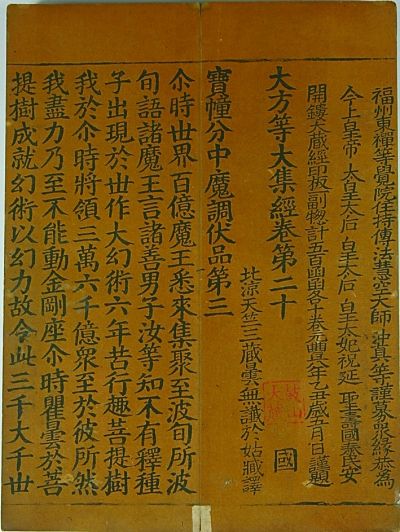 福州東禪等覺院住持傳法慧空大師 冲真等謹募衆緣恭爲
今上皇帝 太皇太后 皇太后 皇太妃祝延 聖壽國泰民安
開鏤大藏經印板一副總計五百函各十卷元祐五月日謹題
大方等大集經卷第二十 國
北涼天竺三藏曇無讖於姑臧譯
寶幢分中魔調伏品第三
尒時世界百億魔王悉來集聚至波旬所波
旬語諸魔王言諸善男子汝等知不有釋種
子出現於世作大幻術六年苦行趣菩提樹
我於尒時將領三萬六千億衆至於彼所然
我盡力乃至不能動金剛座尒時瞿曇於菩
提樹成就幻術以幻力故令此三千大千世